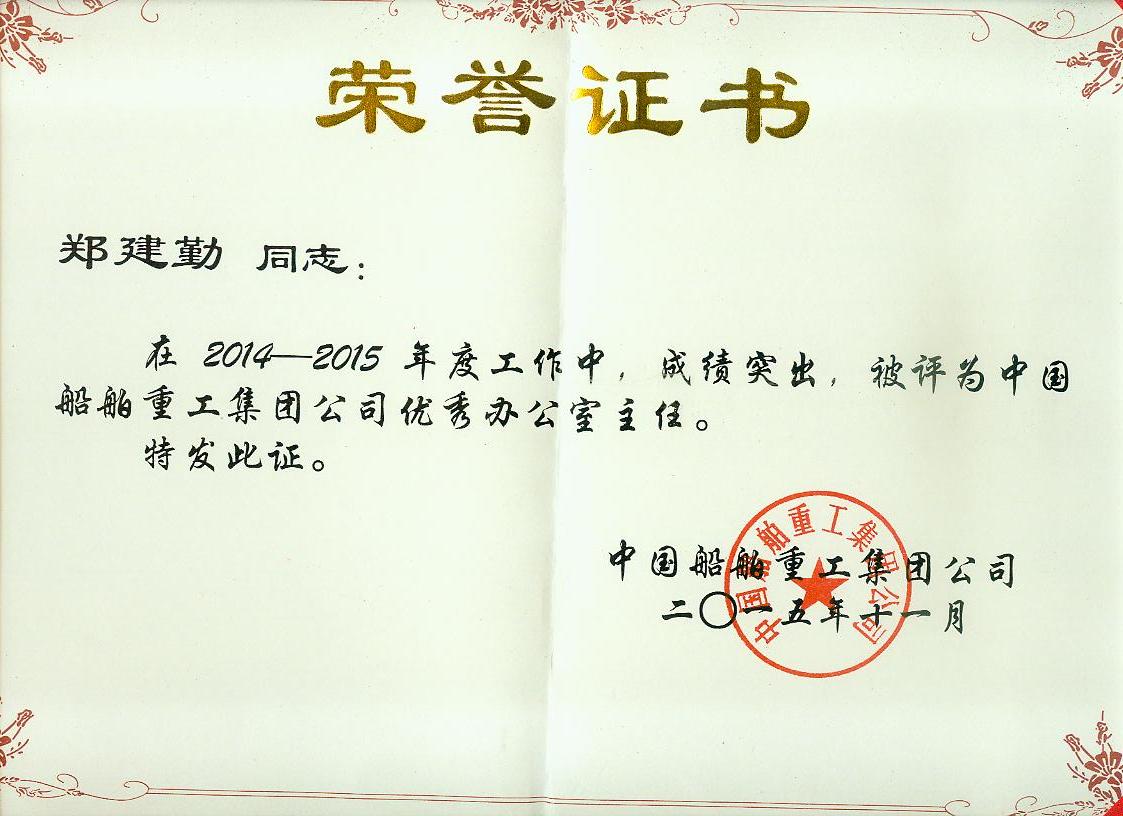 荣誉证书
郑建勤 同志:
在 2014—2015 年度工作中,成绩突出,被评为中国
船舶重工集团公司优秀办公室主任。
特发此证。
中国船舶重工集团公司
二〇一五年十一月
中国船舶重工集团公司